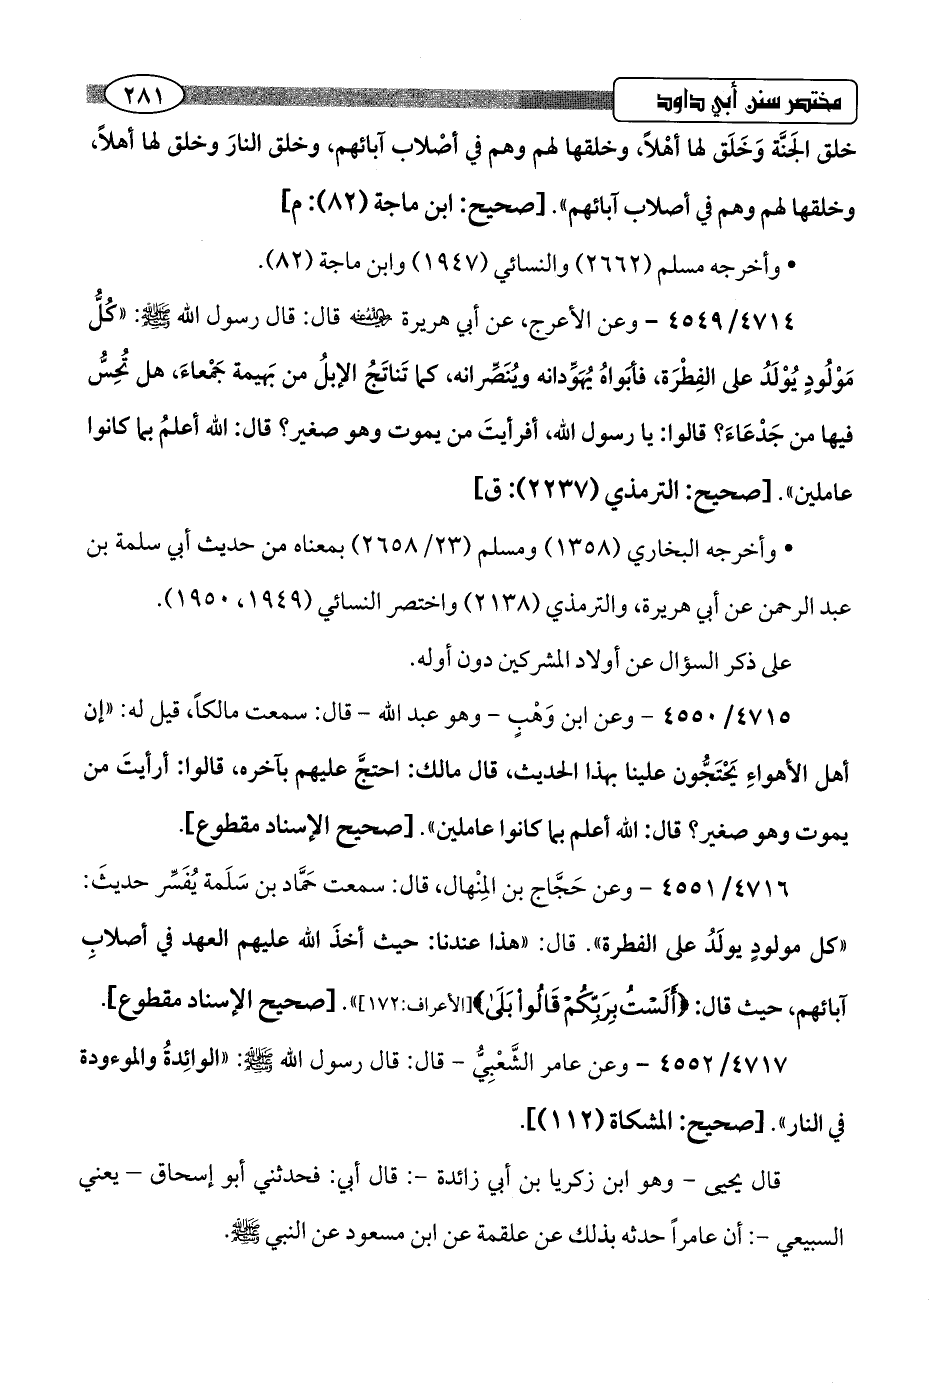 مختصر سنن أبي داود
٢٨١
خلق الجَنَّة وَخَلَق لها أهْلاً، وخلقها لهم وهم في أصْلاب آبائهم، وخلق النارَ وخلق لها أهلاً،
وخلقها لهم وهم في أصلاب آبائهم». [صحيح: ابن ماجة (٨٢): م]
• وأخرجه مسلم (٢٦٦٢) والنسائي (١٩٤٧) وابن ماجة (٨٢).
٤٥٤٩/٤٧١٤ – وعن الأعرج، عن أبي هريرة رضي الله عنه قال: قال رسول الله ﷺ: «كُلُّ
مَوْلُودٍ يُوْلَدُ على الفِطْرَة، فأبَواهُ يُهَوِّدانه ويُنَصِّرانه، كما تَناتَجُ الإبلُ من بَهيمة جَمْعاءَ، هل تُحِسُّ
فيها من جَدْعَاءَ؟ قالوا: يا رسول الله، أفرأيتَ من يموت وهو صغير؟ قال: الله أعلمُ بما كانوا
عاملين». [صحيح: الترمذي (٢٢٣٧): ق]
• وأخرجه البخاري (١٣٥٨) ومسلم (٢٣/ ٢٦٥٨) بمعناه من حديث أبي سلمة بن
عبد الرحمن عن أبي هريرة، والترمذي (٢١٣٨) واختصر النسائي (١٩٤٩، ١٩٥٠).
على ذكر السؤال عن أولاد المشركين دون أوله.
٤٥٥٠/٤٧١٥ – وعن ابن وَهْبٍ – وهو عبد الله – قال: سمعت مالكاً، قيل له: «إن
أهل الأهواءِ يَحْتَجُّون علينا بهذا الحديث، قال مالك: احتجَّ عليهم بآخره، قالوا: أرأيتَ من
يموت وهو صغير؟ قال: الله أعلم بما كانوا عاملين». [صحيح الإسناد مقطوع].
٤٥٥١/٤٧١٦ – وعن حَجَّاج بن المِنْهال، قال: سمعت حَمَّاد بن سَلَمة يُفَسِّر حديثَ:
«كل مولودٍ يولَدُ على الفطرة». قال: «هذا عندنا: حيث أخذَ الله عليهم العهد في أصلابِ
آبائهم، حيث قال: ﴿أَلَسْتُ بِرَبِّكُمْ قَالُواْ بَلَىٰ﴾[الأعراف:١٧٢]». [صحيح الإسناد مقطوع].
٤٥٥٢/٤٧١٧ – وعن عامر الشَّعْبِيُّ – قال: قال رسول الله ﷺ: «الوائِدةُ والموءودة
في النار». [صحيح: المشكاة (١١٢)].
قال يحيى – وهو ابن زكريا بن أبي زائدة –: قال أبي: فحدثني أبو إسحاق – يعني
السبيعي –: أن عامراً حدثه بذلك عن علقمة عن ابن مسعود عن النبي ﷺ.